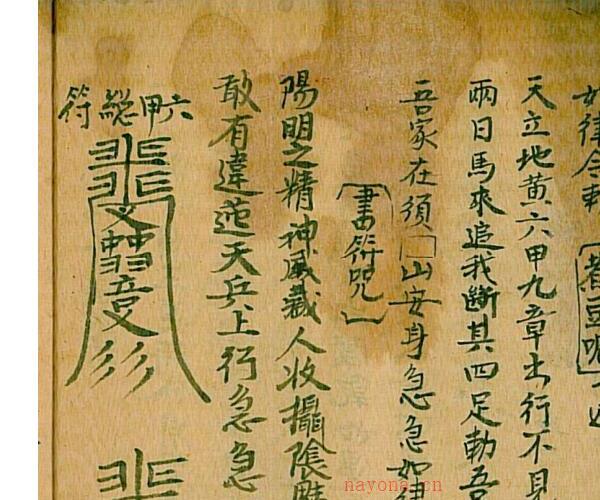 如律令敕【煮豆呪
天立地黄六甲九章出行不見
兩日馬來追我斷其四足勅吾
吾家在須□山安身急急如律
【書符咒】
陽明之精神威藏人收攝陰
敢有違逆天兵上行急急
六甲總符
nayona.cn